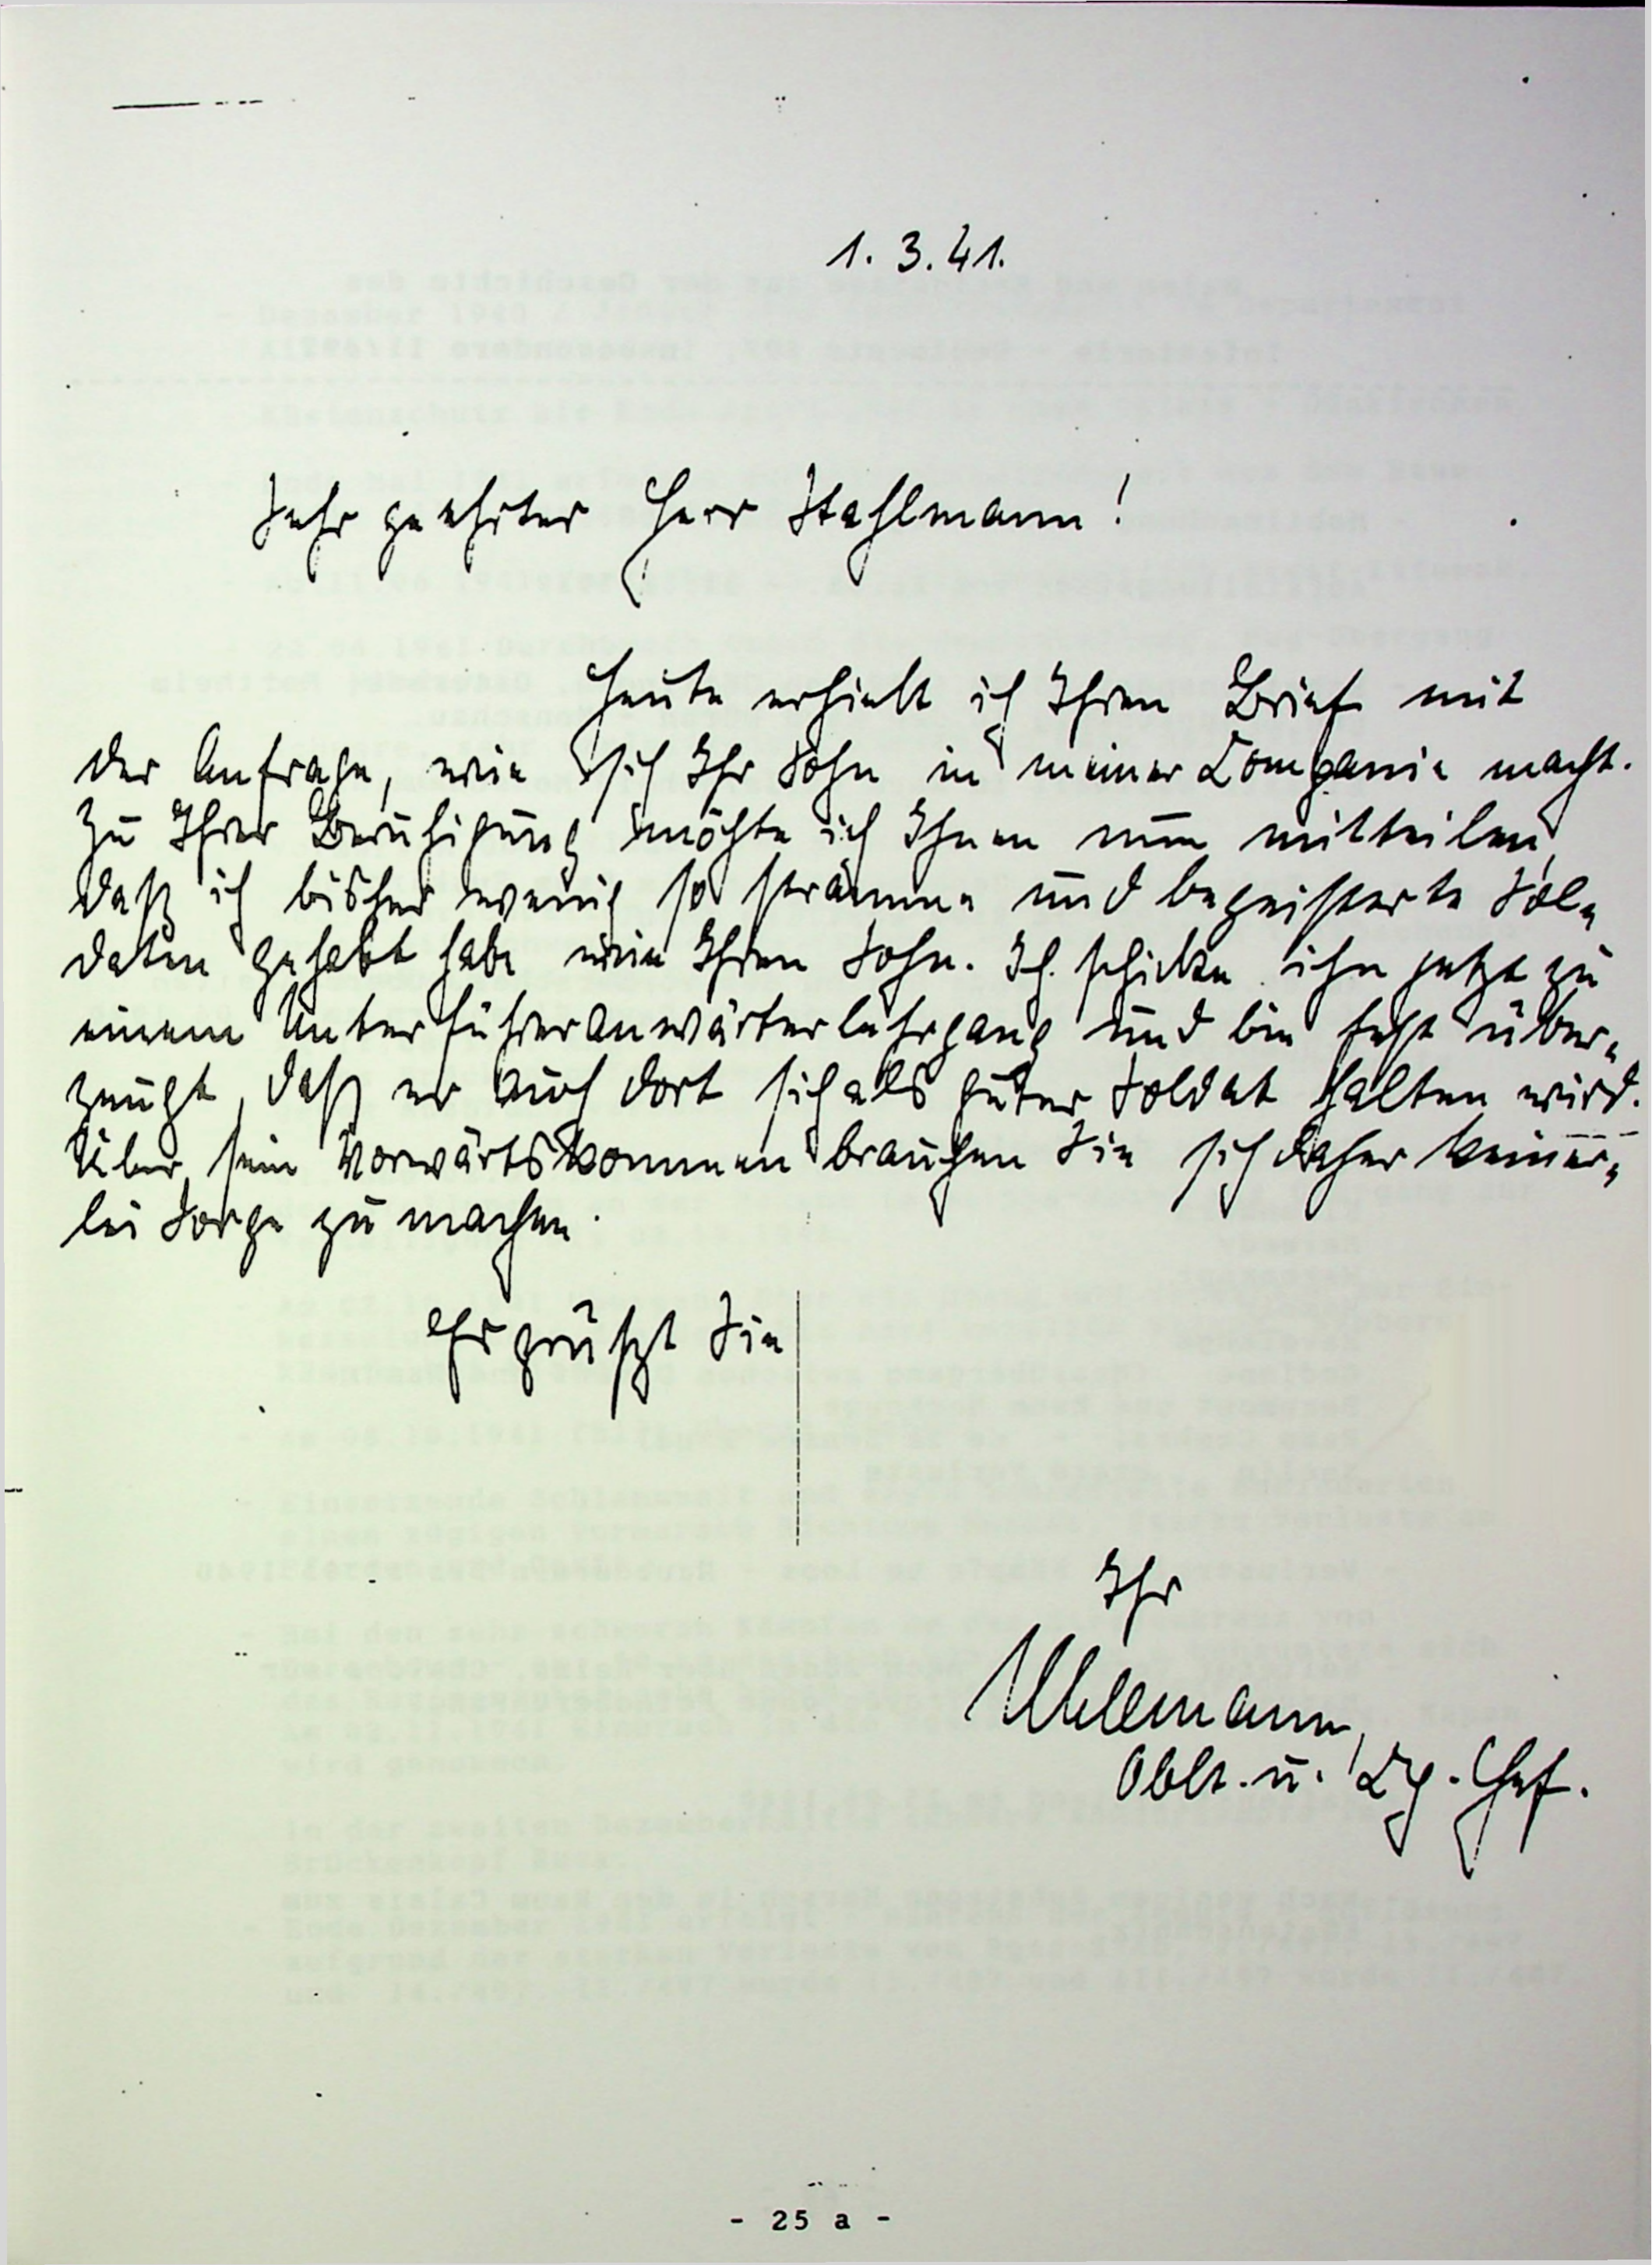 1. 3. 41.
Sehr geehrter Herr Stahlmann!
Heute erhielt ich Ihren Brief mit
der Anfrage, wie sich Ihr Sohn in meiner Kompanie macht.
Zu Ihrer Beruhigung möchte ich Ihnen nun mitteilen,
daß ich bisher wenig so stramme und begeisterte Sol-
daten gehabt habe wie Ihren Sohn. Ich schicke ihn jetzt zu
einem Unterführeranwärterlehrgang und bin fest über-
zeugt, daß er auch dort sich als guter Soldat halten wird.
Über sein Vorwärtskommen brauchen Sie sich daher keiner-
lei Sorge zu machen.
Es grüßt Sie
Ihr
Uhlemann,
Oblt. u. Kp.-Chef.
- 25 a -